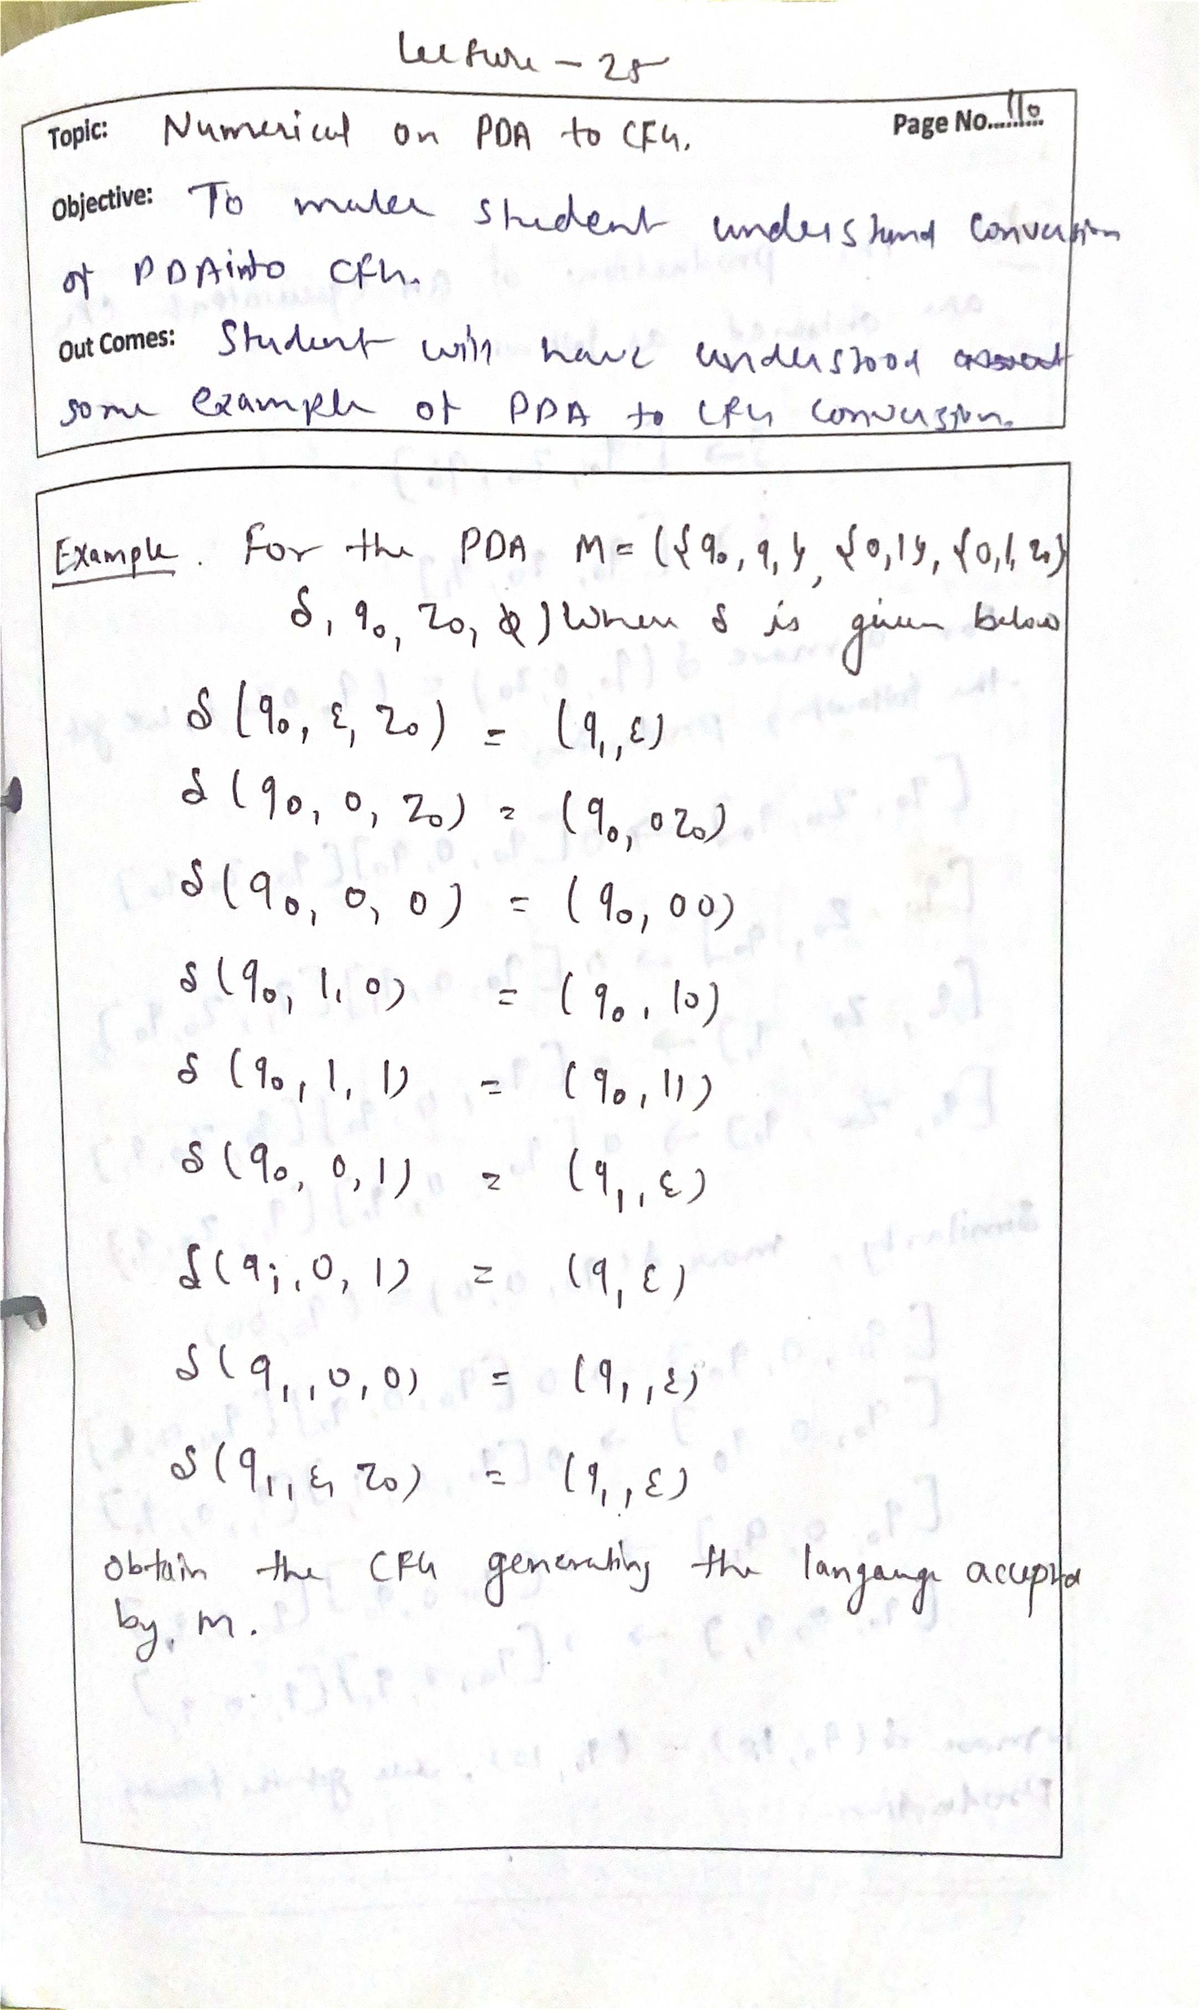 Lecture - 28
Topic: Numerical on PDA to CFG. Page No. 110
Objective: To make student understand Conversion
of PDA into CFG.
Out Comes: Student will have understood
some example of PDA to CFG Conversion.
Example. For the PDA M = ({q₀, q₁}, {0,1}, {0,1, z₀}
δ, q₀, z₀, ϕ) When δ is given below
δ (q₀, ε, z₀) = (q₁, ε)
δ (q₀, 0, z₀) = (q₀, 0z₀)
δ (q₀, 0, 0) = (q₀, 00)
δ (q₀, 1, 0) = (q₀, 10)
δ (q₀, 1, 1) = (q₀, 11)
δ (q₀, 0, 1) = (q₁, ε)
δ (q₁, 0, 1) = (q₁ ε)
δ (q₁, 0, 0) = (q₁, ε)
δ (q₁, ε, z₀) = (q₁, ε)
Obtain the CFG generating the langauge accepted
by. M.